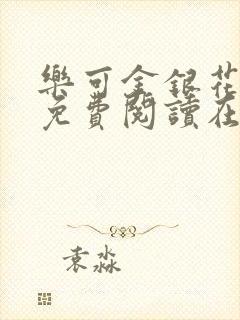 樂可金銀花
免費閱讀在
袁淼